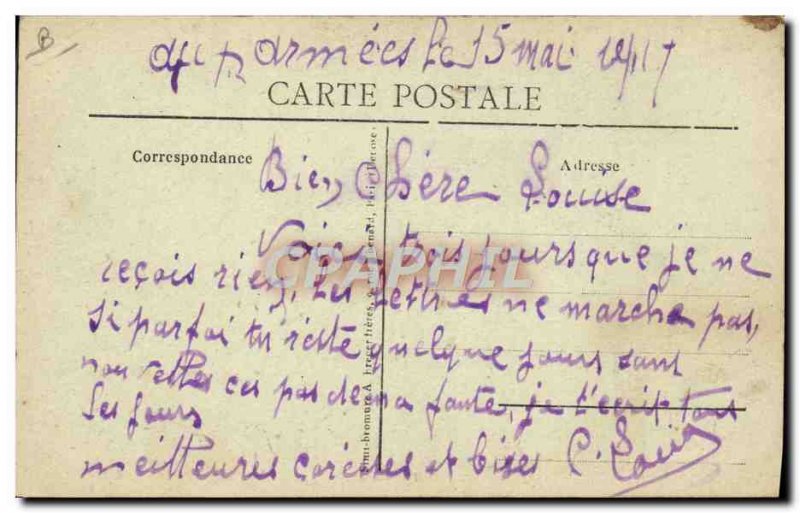 aux armées le 15 mai 1917
CARTE POSTALE
Correspondance
Adresse
Bien Chère Louise
Voici trois jours que je ne
reçois rien, les lettres ne marche pas,
si parfoi tu reste quelque jours sans
nouvelles ces pas de ma faute, je t'ecrit tous
les jours
meilleures caresses et bises C. Louis
CPAPHIL
B